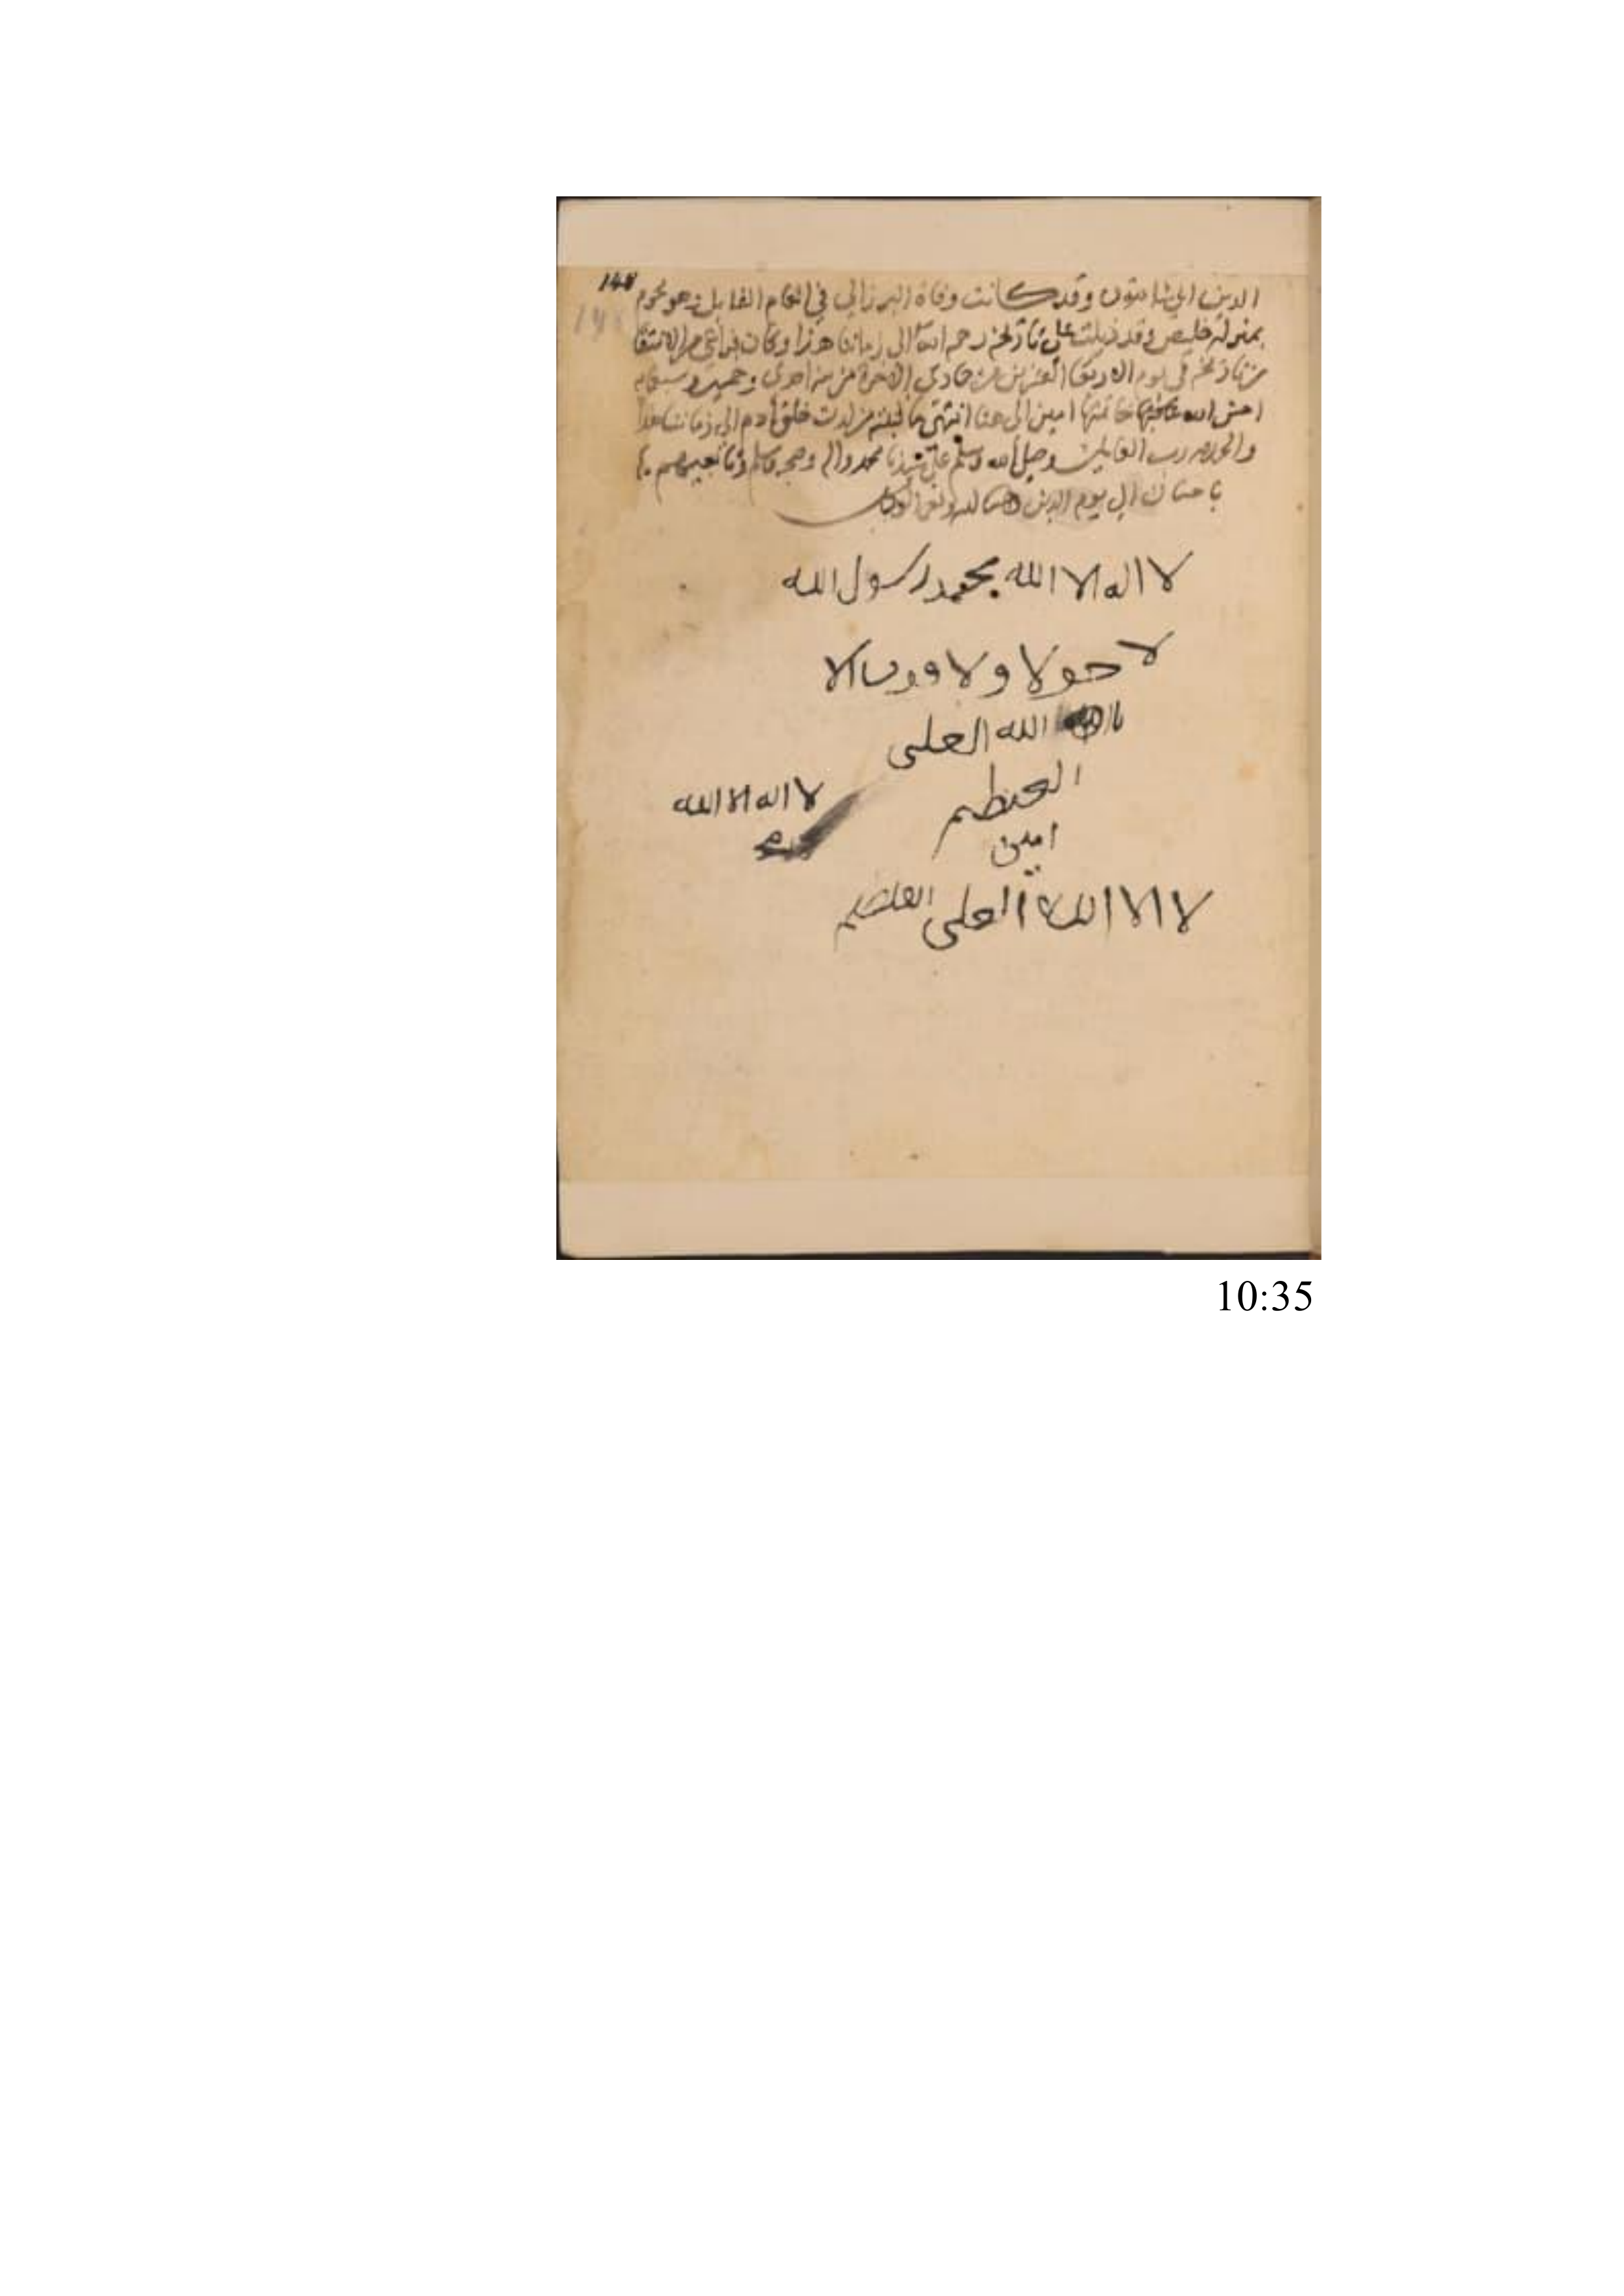 148
الدين ابي شامة وقد كانت وفاة البرزالي في العام القابل وهو محرم
بمنزلة خليص وقد ذيلت على تاريخه رحمه الله الى زماننا هذا وكان فراغي من الانتقا
من تاريخه في يوم الاربعا العشرين من جمادى الاخرة من سنة احدى وخمسين وسبعمايه
احسن الله خاتمتها امين الى هنا انتهى ما كتبته من لدن خلق ادم الى زماننا هذا
والحمد لله رب العالمين وصلى الله وسلم على سيدنا محمد واله وصحبه وسلم وتابعيهم
باحسان الى يوم الدين حسبنا الله ونعم الوكيل
لا اله الا الله محمد رسول الله
لا حولا ولا قوت الا
بالله الله العلى
العظيم
لا اله الا الله
امين
لا الا الله العلى العظيم
10:35